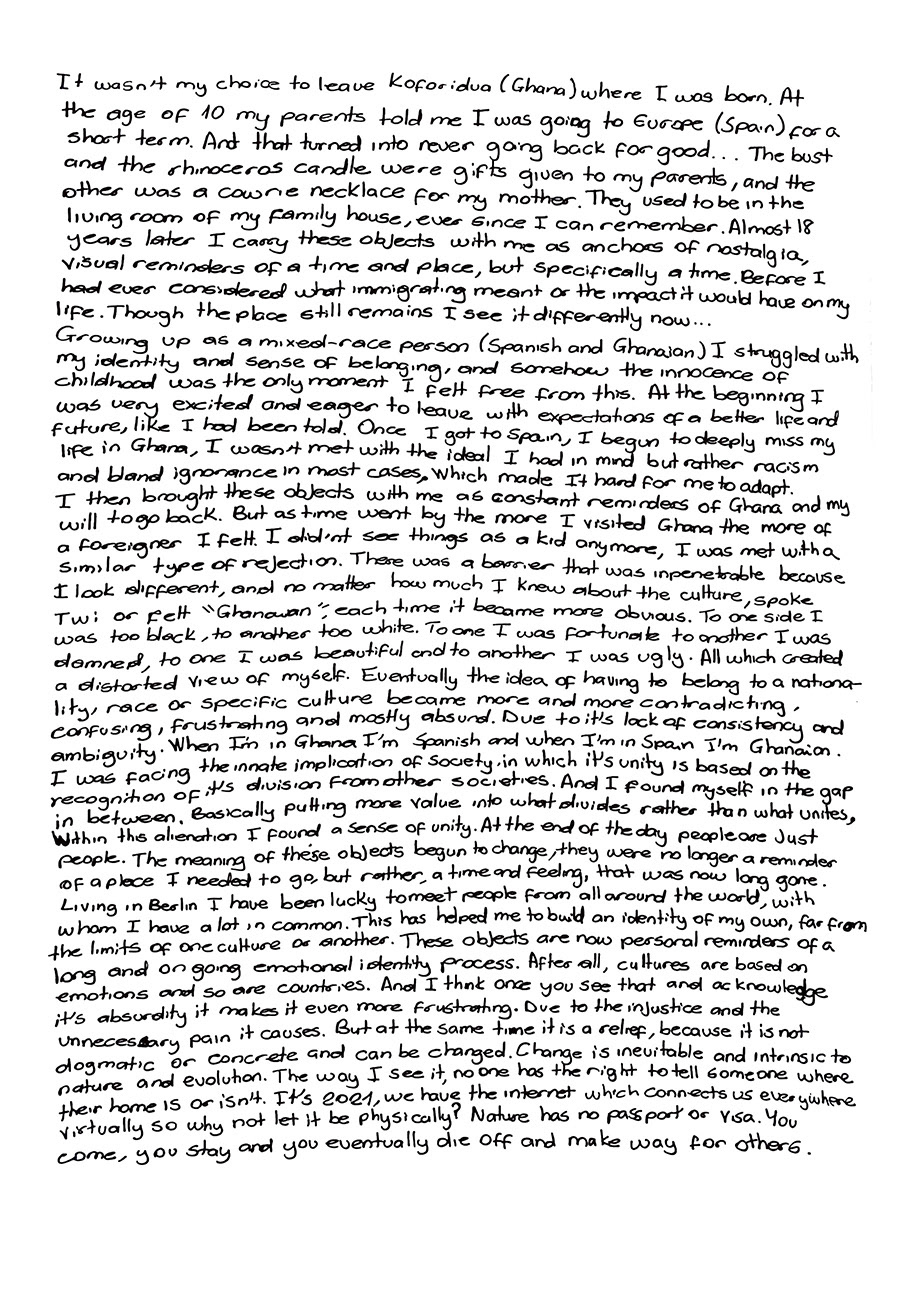 It wasn't my choice to leave Koforidua (Ghana) where I was born. At
the age of 10 my parents told me I was going to Europe (Spain) for a
short term. And that turned into never going back for good... The bust
and the rhinoceros candle were gifts given to my parents, and the
other was a cowrie necklace for my mother. They used to be in the
living room of my family house, ever since I can remember. Almost 18
years later I carry these objects with me as anchors of nostalgia,
visual reminders of a time and place, but specifically a time. Before I
had ever considered what immigrating meant or the impact it would have on my
life. Though the place still remains I see it differently now...
Growing up as a mixed-race person (Spanish and Ghanaian) I struggled with
my identity and sense of belonging, and somehow the innocence of
childhood was the only moment I felt free from this. At the beginning I
was very excited and eager to leave with expectations of a better life and
future, like I had been told. Once I got to Spain, I begun to deeply miss my
life in Ghana, I wasn't met with the ideal I had in mind but rather racism
and bland ignorance in most cases, which made It hard for me to adapt.
I then brought these objects with me as constant reminders of Ghana and my
will to go back. But as time went by the more I visited Ghana the more of
a foreigner I felt. I did'nt see things as a kid anymore, I was met with a
similar type of rejection. There was a barrier that was inpenetrable because
I look different, and no matter how much I knew about the culture, spoke
Twi or felt "Ghanaian", each time it became more obvious. To one side I
was too black, to another too white. To one I was fortunate to another I was
damned, to one I was beautiful and to another I was ugly. All which created
a distorted view of myself. Eventually the idea of having to belong to a nationa-
lity, race or specific culture became more and more contradicting,
confusing, frustrating and mostly absurd. Due to it's lack of consistency and
ambiguity. When I'm in Ghana I'm Spanish and when I'm in Spain I'm Ghanaian.
I was facing the innate implication of society, in which it's unity is based on the
recognition of it's division from other societies. And I found myself in the gap
in between. Basically putting more value into what divides rather than what unites,
Within this alienation I found a sense of unity. At the end of the day people are Just
people. The meaning of these objects begun to change, they were no longer a reminder
of a place I needed to go, but rather, a time and feeling, that was now long gone.
Living in Berlin I have been lucky to meet people from all around the world, with
whom I have a lot in common. This has helped me to build an identity of my own, far from
the limits of one culture or another. These objects are now personal reminders of a
long and on going emotional identity process. After all, cultures are based on
emotions and so are countries. And I think once you see that and acknowledge
it's absurdity it makes it even more frustrating. Due to the injustice and the
unnecessary pain it causes. But at the same time it is a relief, because it is not
dogmatic or concrete and can be changed. Change is inevitable and intrinsic to
nature and evolution. The way I see it, no one has the right to tell someone where
their home is or isn't. It's 2021, we have the internet which connects us everywhere
virtually so why not let it be physically? Nature has no passport or visa. You
come, you stay and you eventually die off and make way for others.